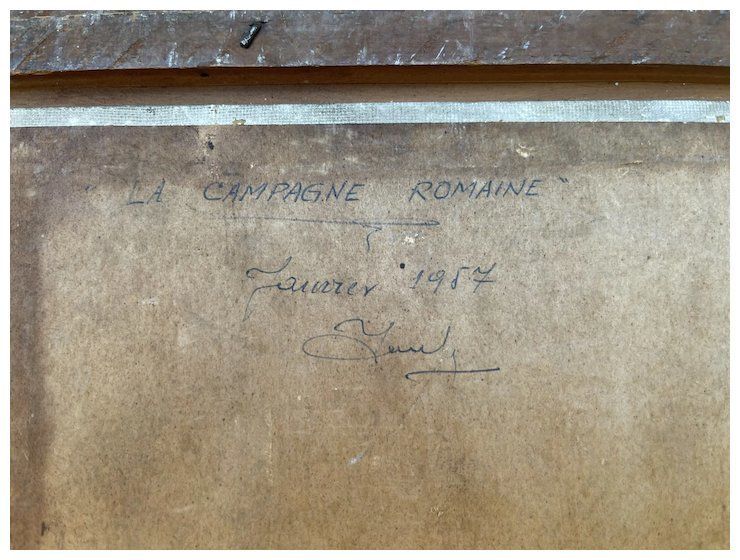 "LA CAMPAGNE ROMAINE"
Janvier 1957